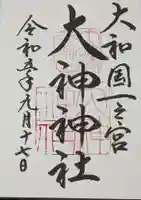 大和国一之宮
大神神社
令和五年九月十七日